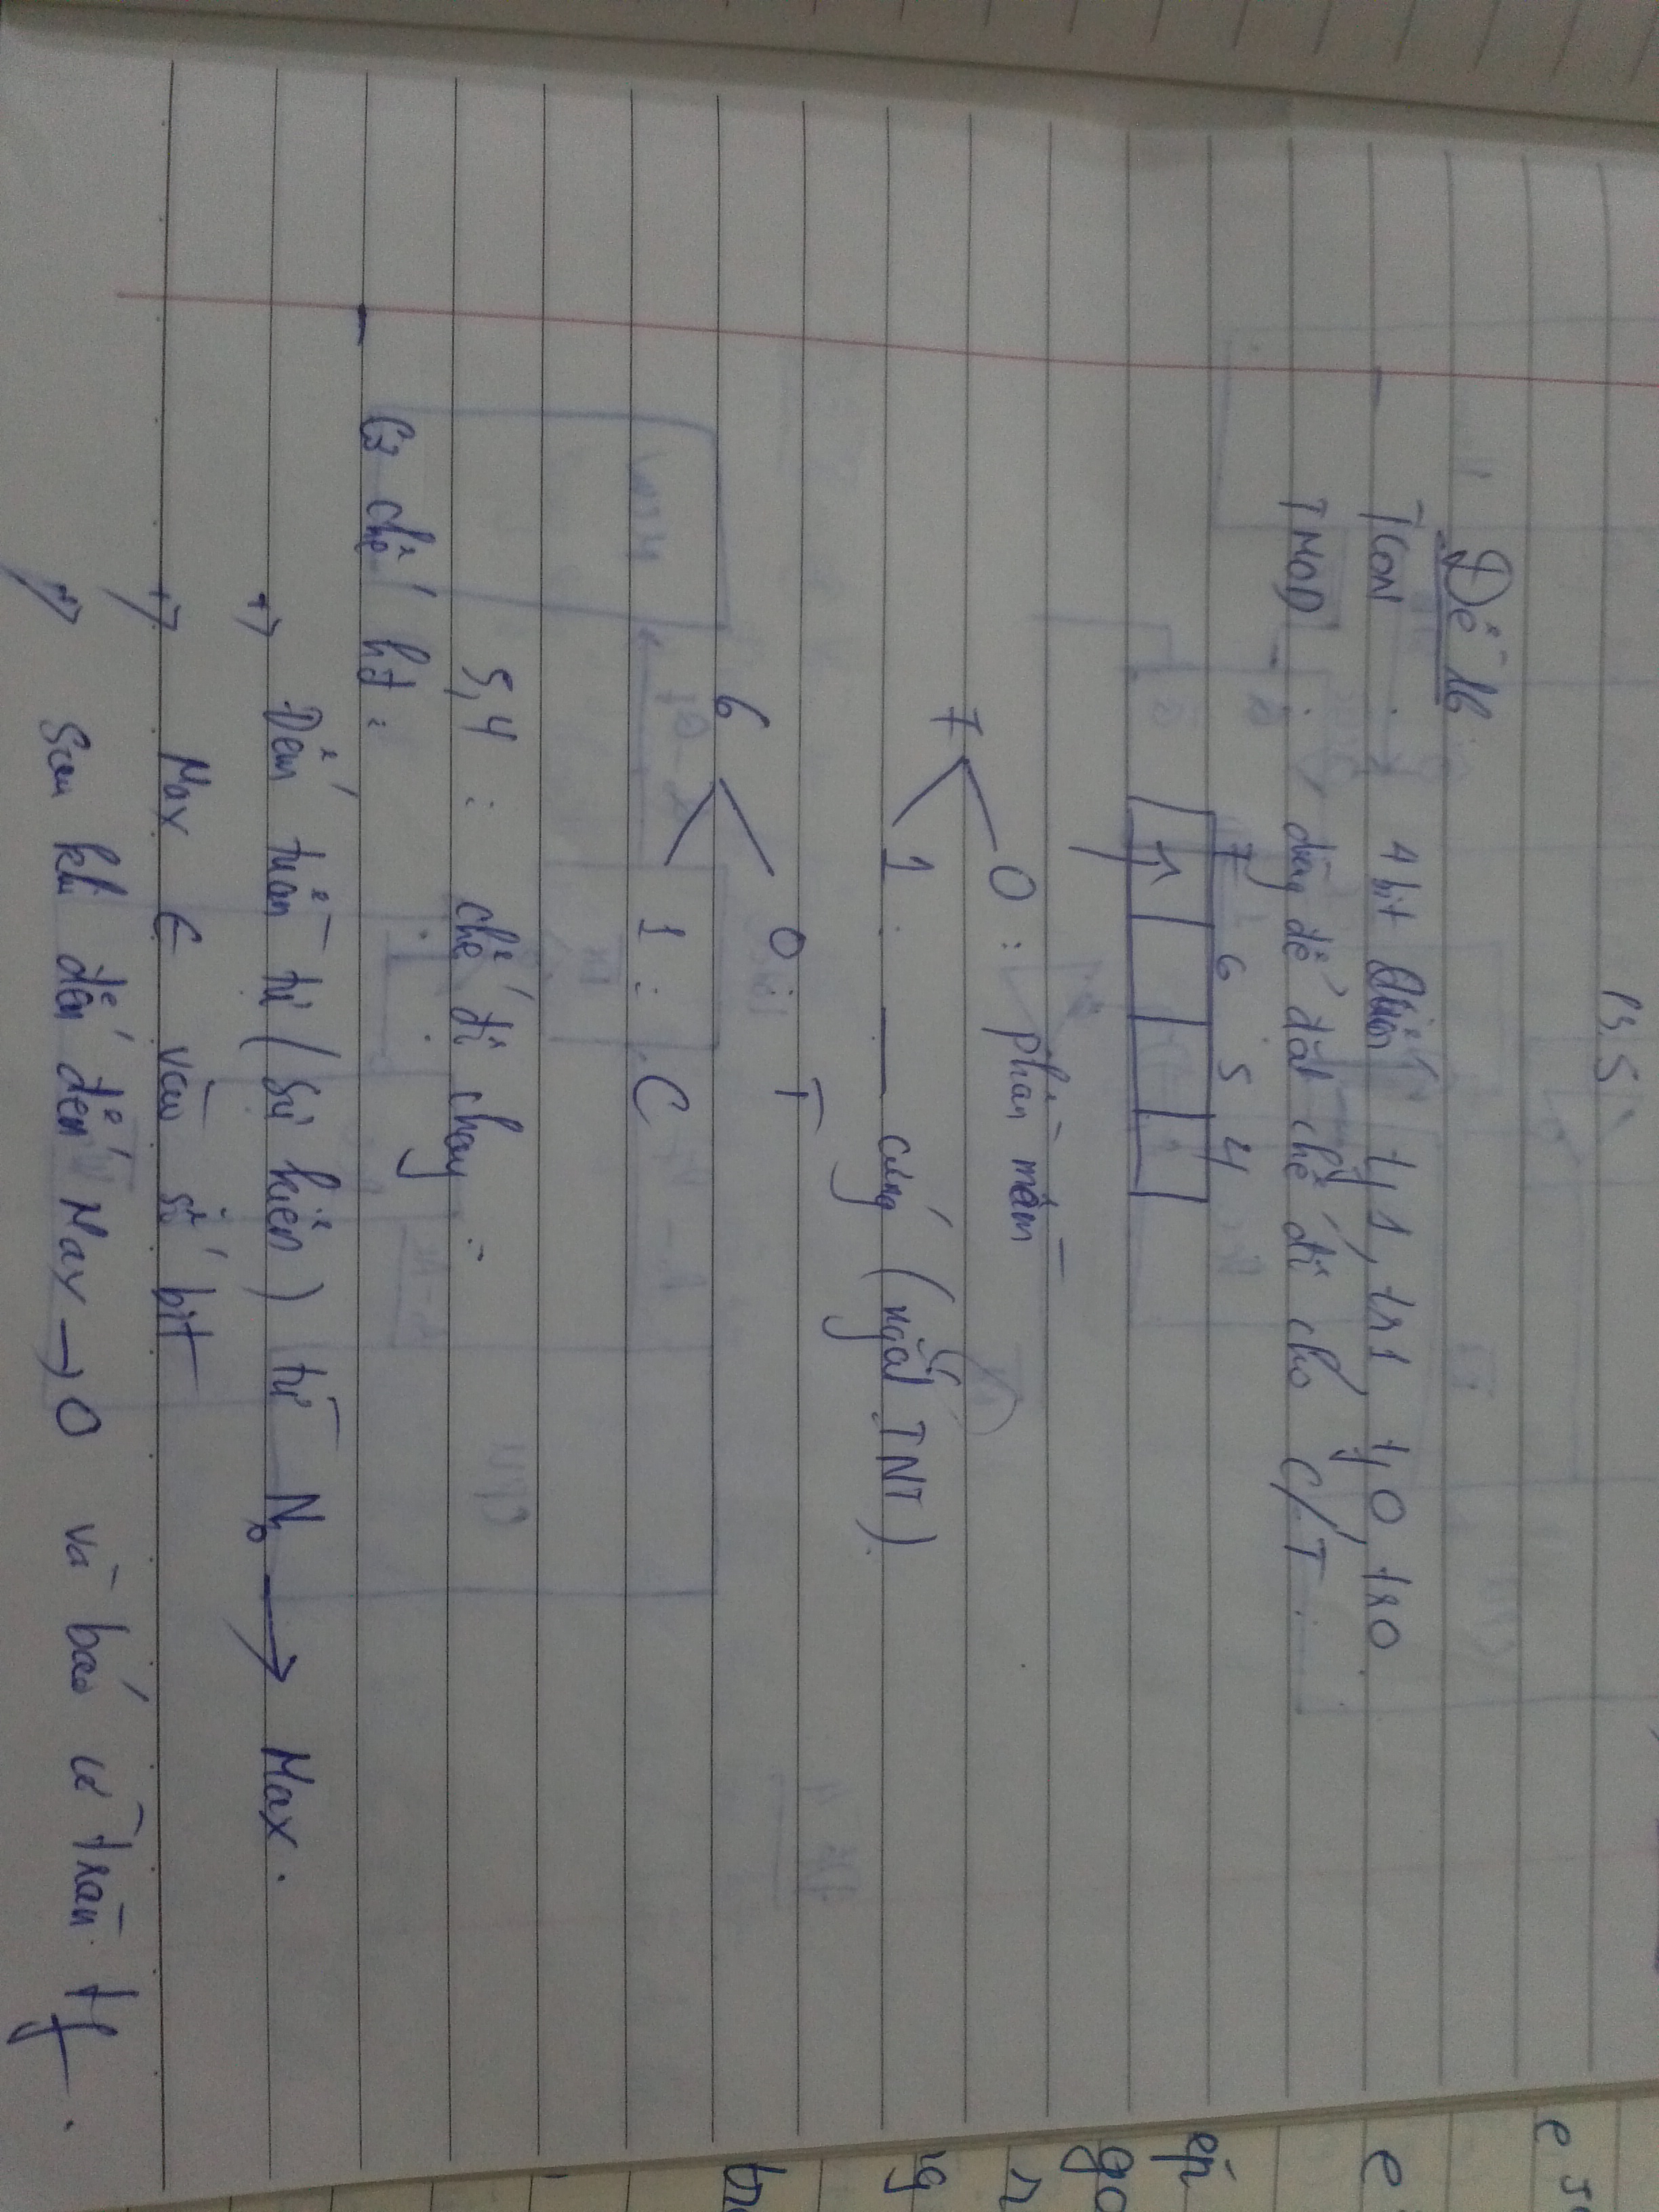 P3.5
Đề 16
- TCON : 4 bit tf1, tr1, tf0, tr0.
TMOD : dùng để đặt chế độ cho C/T.
7 6 5 4
0 : phần mềm
7
1 : — cứng (ngắt INT).
0 : T
6
1 : C
5,4 : chế độ chạy
- Cơ chế hđ :
+> Đếm tuần tự (sự kiện) từ N0 → Max.
+> Max ∈ vào số bit
+> Sau khi đếm đến Max → 0 và báo cờ tràn tf.
e
e
ép
r